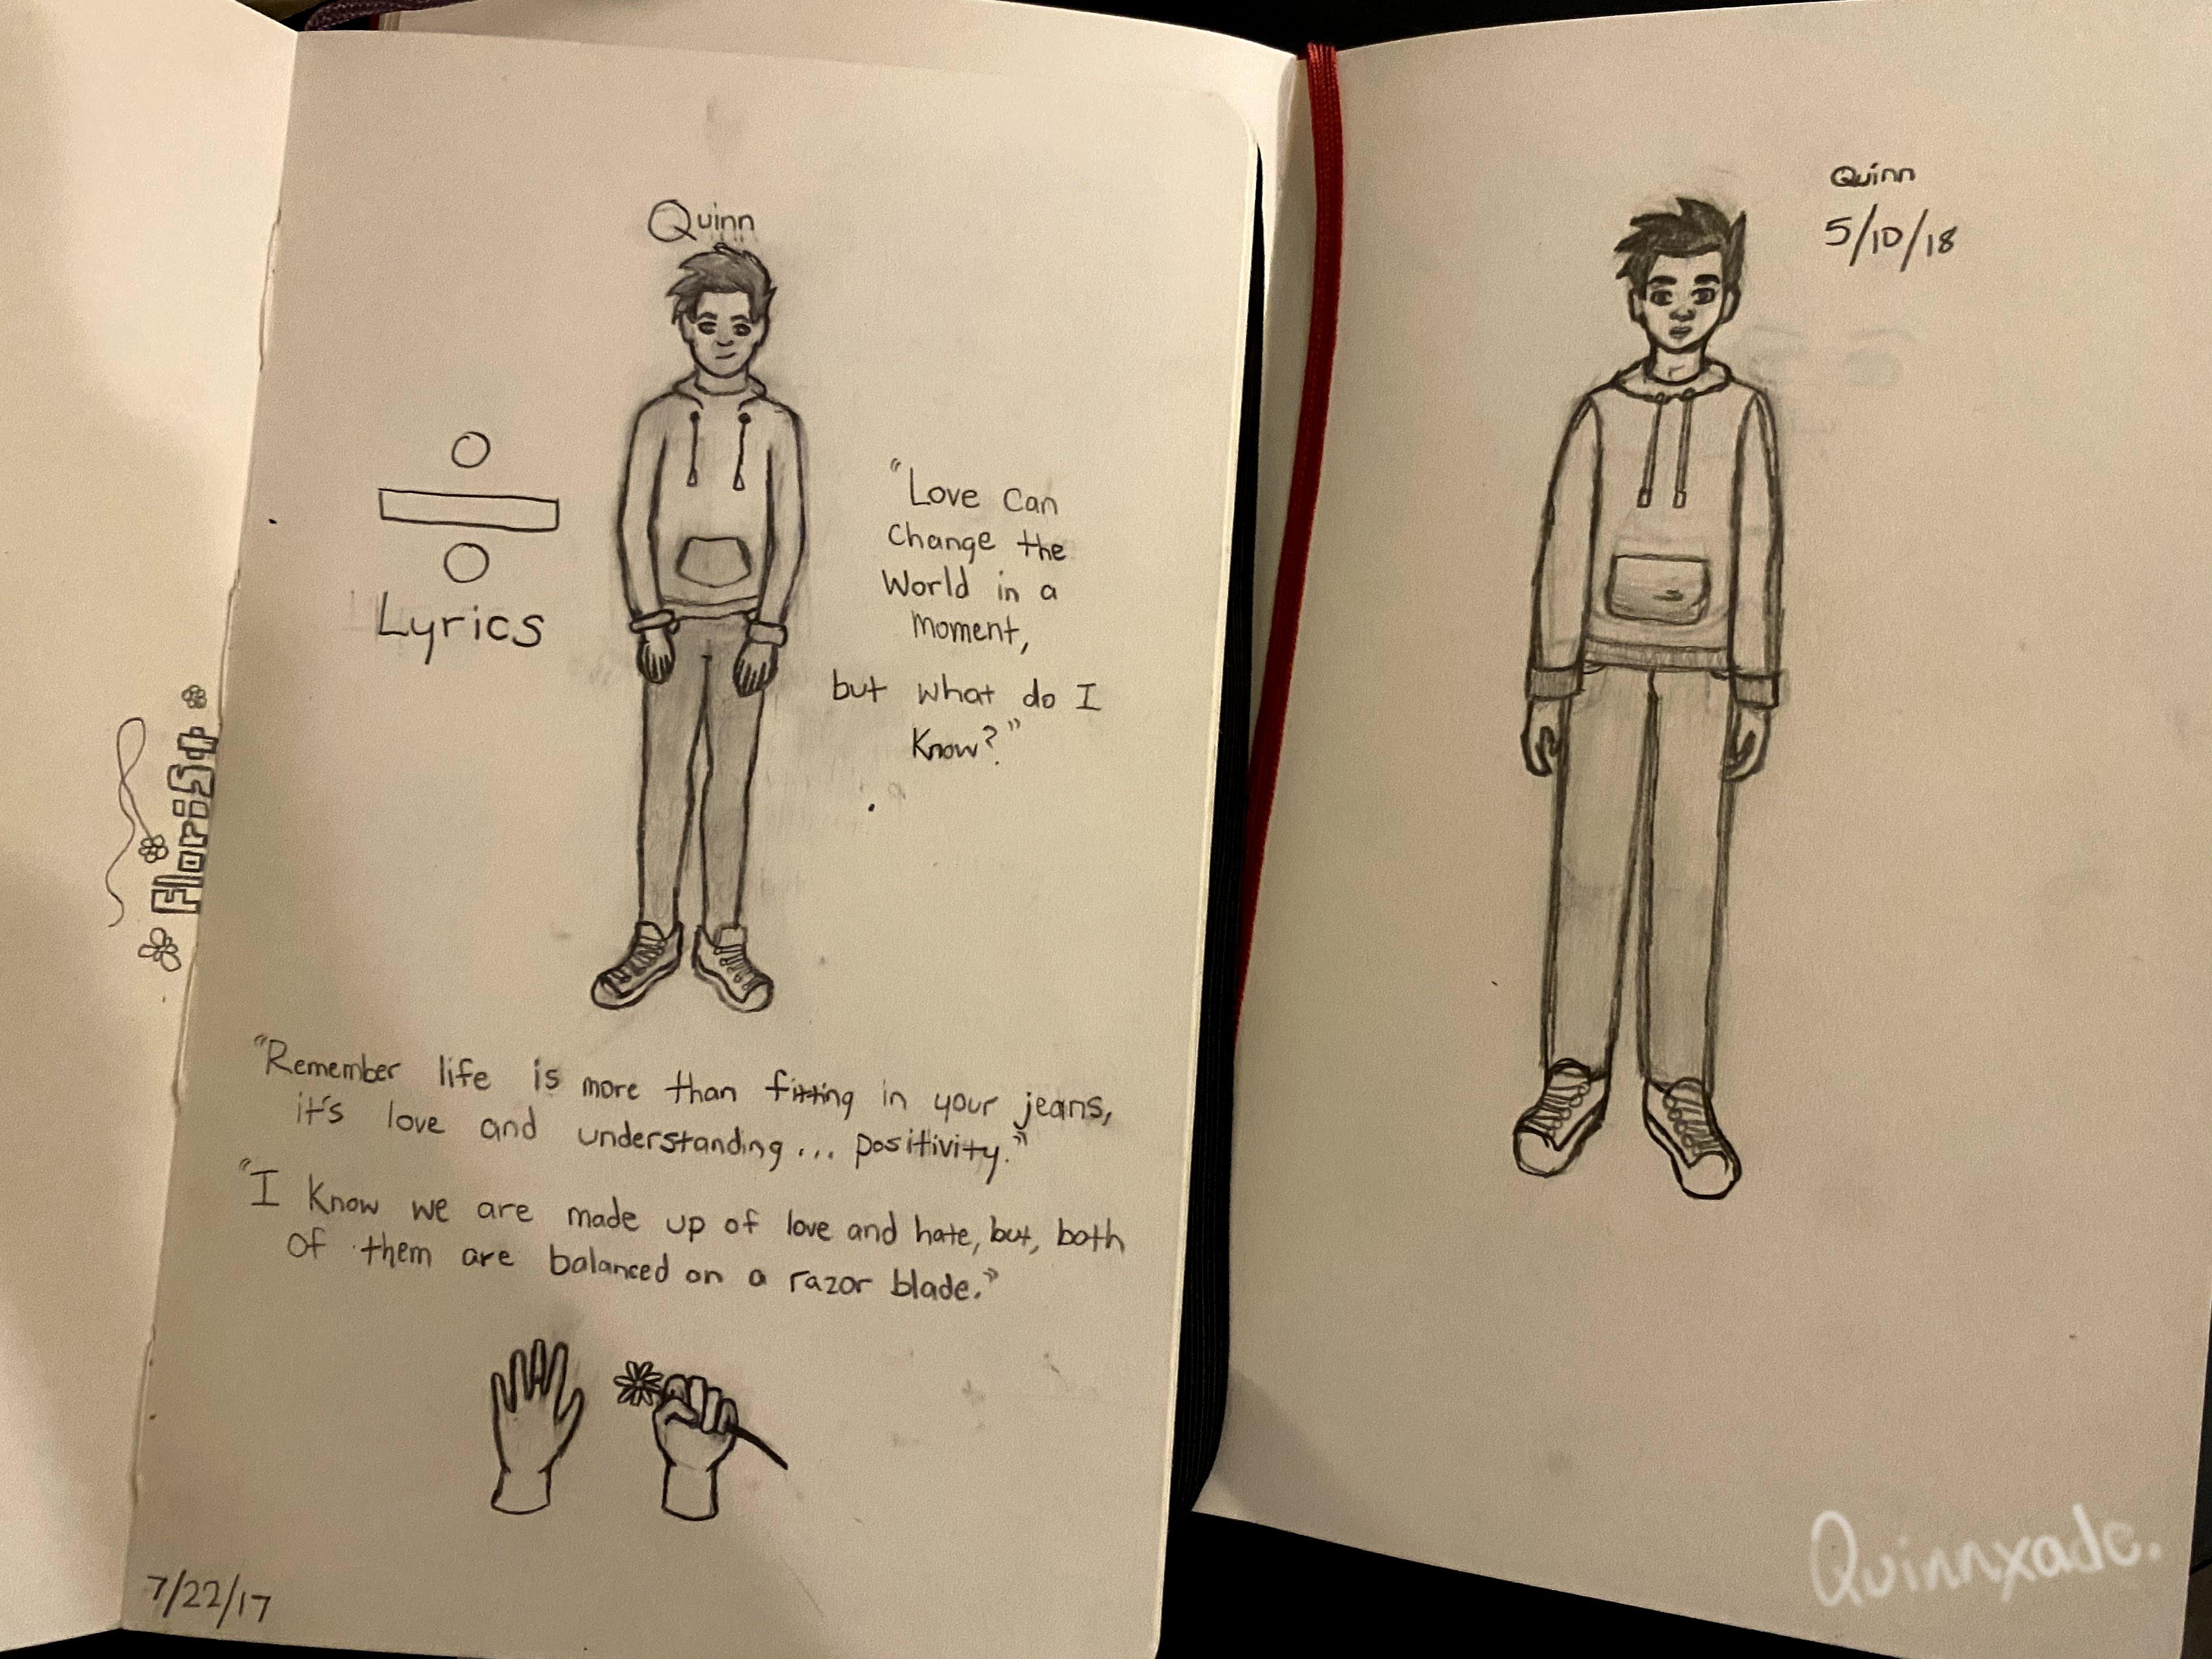 Quinn
÷
Lyrics
"Love Can
Change the
World in a
moment,
but what do I
Know?"
Florist
"Remember life is more than fitting in your jeans,
it's love and understanding... positivity."
"I know we are made up of love and hate, but, both
of them are balanced on a razor blade."
7/22/17
Quinn
5/10/18
Quinnxade.